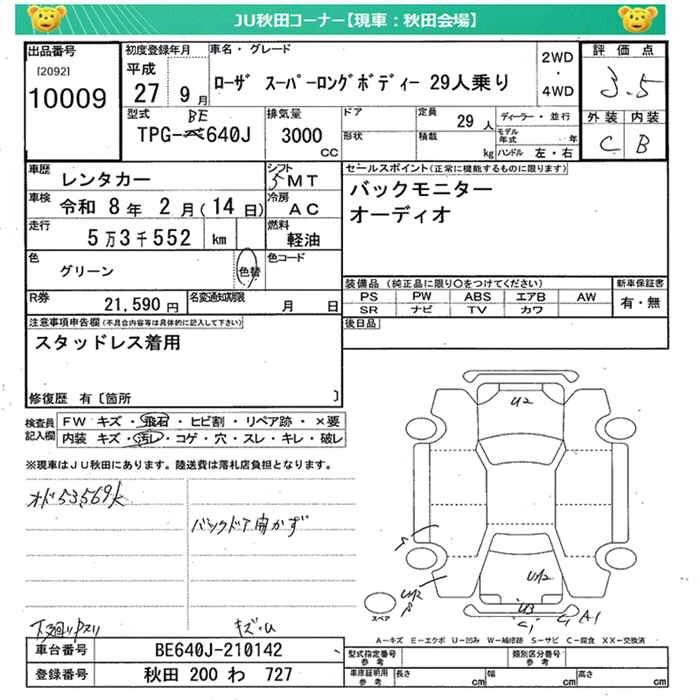 JU秋田コーナー【現車：秋田会場】
出品番号
[2092]
10009
初度登録年月
平成
27 9月
車名・グレード
ローザ スーパーロングボディー 29人乗り
2WD
・
4WD
評価点
3.5
外装 内装
C B
型式 BE
TPG-640J
排気量
3000
CC
ドア
形状
定員
29人
積載
kg
ディーラー・並行
モデル年式 年
ハンドル 左・右
車歴
レンタカー
シフト
5MT
車検
令和 8年 2月(14日)
冷房
AC
走行
5万3千552 km
燃料
軽油
色
グリーン
色替
色コード
R券
21,590円
名変通知期限
月 日
セールスポイント(正常に機能するものに限ります)
バックモニター
オーディオ
装備品 (純正品に限り〇をつけてください)
PS PW ABS エアB AW
SR ナビ TV カワ
新車保証書
有・無
後日品
注意事項申告欄(不具合内容等は具体的に記入して下さい)
スタッドレス着用
修復歴 有〔箇所 〕
検査員記入欄
FW キズ・飛石・ヒビ割・リペア跡・×要
内装 キズ・汚レ・コゲ・穴・スレ・キレ・破レ
※現車はJU秋田にあります。陸送費は落札店負担となります。
オド53,569k
バックドア開かず
下廻りサスリ
キズ・U
U2
U3
C1
A1
スペア
A－キズ E－エクボ U－凹み W－補修跡 S－サビ C－腐食 XX－交換済
車台番号
BE640J-210142
登録番号
秋田 200 わ 727
型式指定番号
参考
類別区分番号
参考
車庫証明用
参考
長さ cm
幅 cm
高さ cm